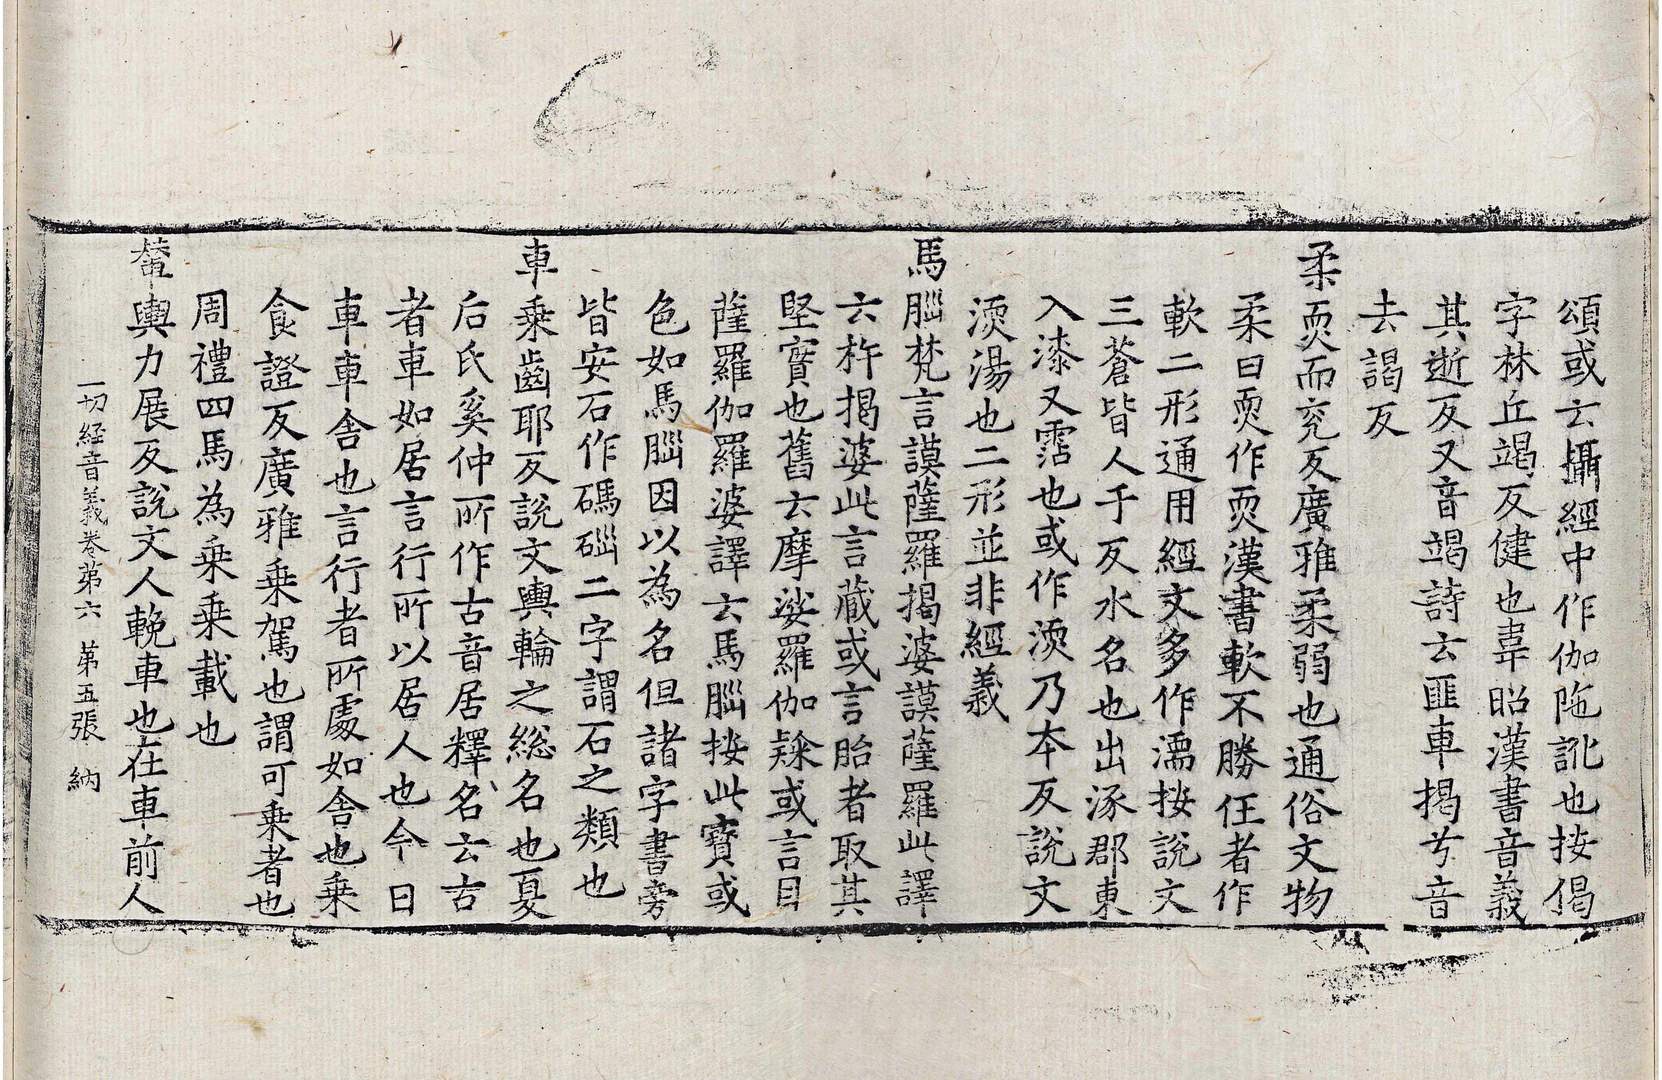 頌或云攝經中作伽陁訛也按偈
字林丘竭反健也韋昭漢書音義
其逝反又音竭詩云匪車揭兮音
去謁反
柔耎而兖反廣雅柔弱也通俗文物
柔曰耎作耎漢書軟不勝任者作
軟二形通用經文多作濡按說文
三蒼皆人于反水名也出涿郡東
入漆又霑也或作渜乃本反說文
渜湯也二形並非經義
馬腦梵言謨薩羅揭婆謨薩羅此譯
云杵揭婆此言藏或言胎者取其
堅實也舊云摩娑羅伽隸或言目
薩羅伽羅婆譯云馬腦按此寳或
色如馬腦因以為名但諸字書旁
皆安石作碼碯二字謂石之類也
車乘齒耶反說文輿輪之総名也夏
后氏奚仲所作古音居釋名云古
者車如居言行所以居人也今日
車車舍也言行者所處如舍也乗
食證反廣雅乗駕也謂可乗者也
周禮四馬為乗乗載也
輦輿力展反說文人輓車也在車前人
一切経音義卷第六 第五張 納